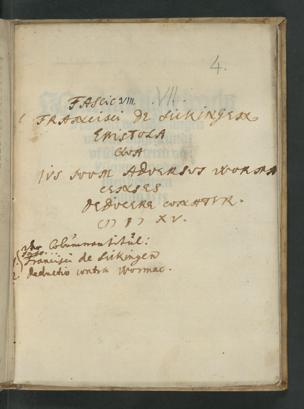 4.
FAScic VIII. VII
FRANcisci DE SickingEN
EPISTOLA
QUA
JVS SUUM ADVERSUS WORMA
CENSES
DEDUCERE CONATUR.
XV.
Columnantitul:
1. Francisci de Sickingen
2. Deductio contra Wormac.